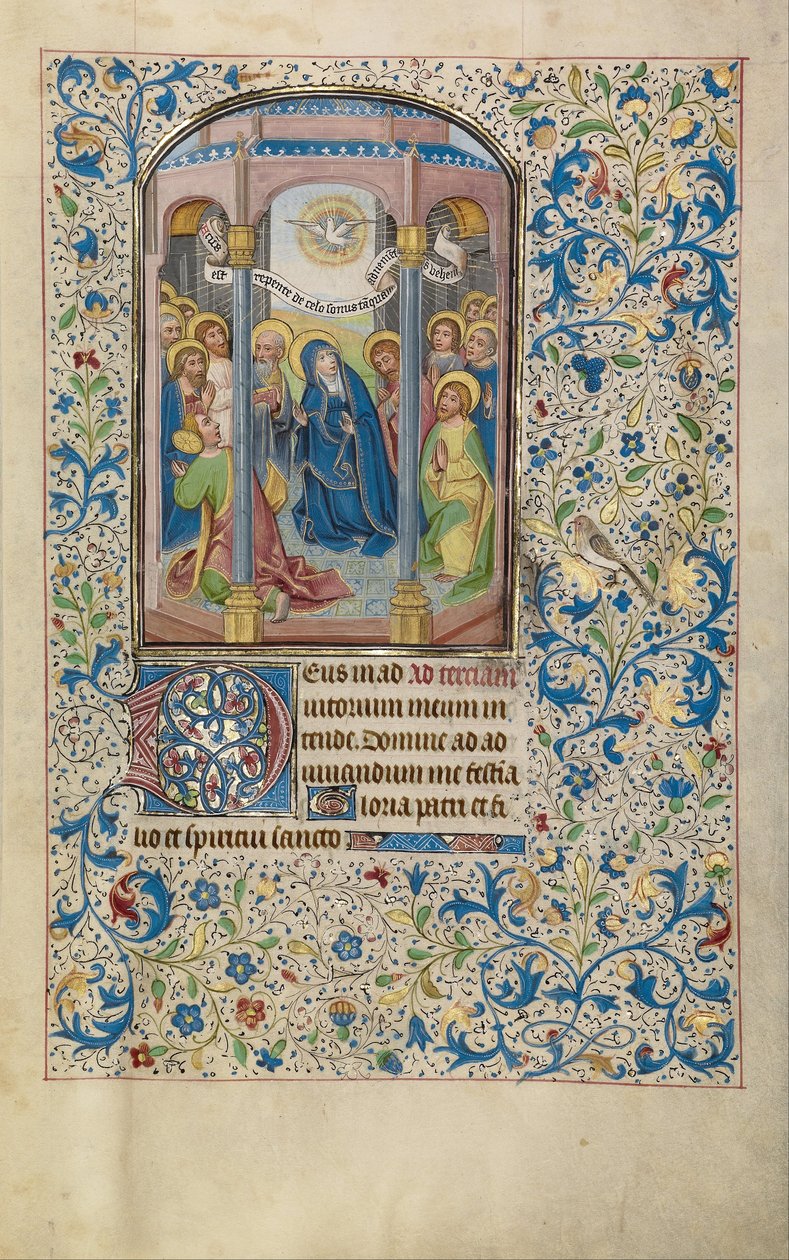 Factus est repente de celo sonus tãquam advenientis vehem
Deus in ad Ad terciam
iutorium meum in
tende. Domine ad ad
iuuandum me festia
Gloria patri et fi
lio et spiritui sancto